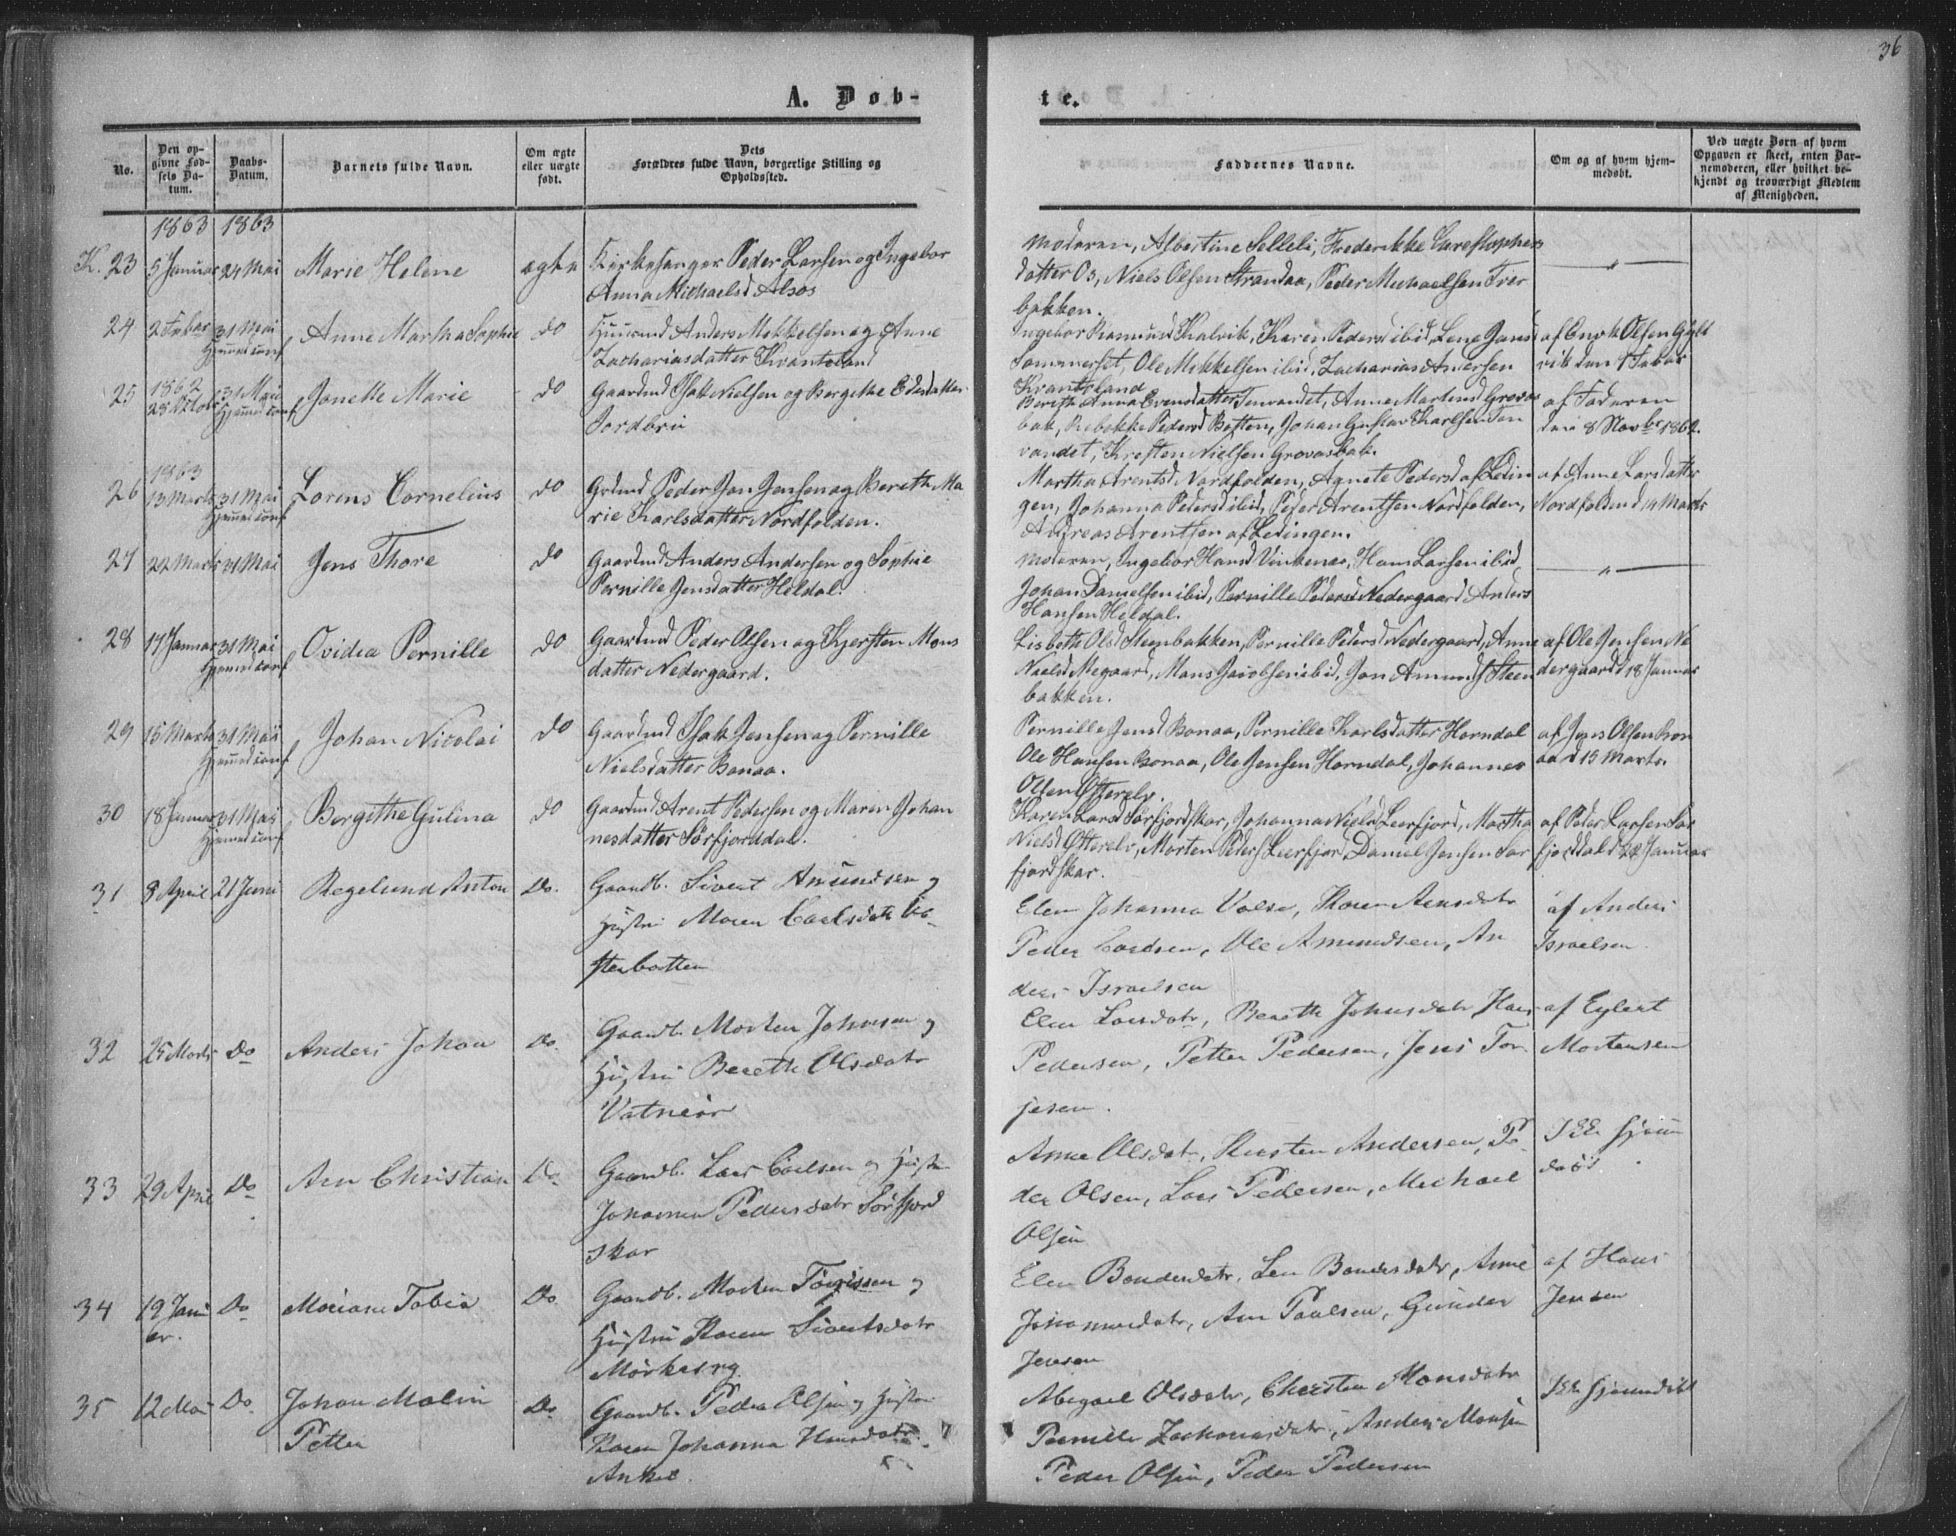 36
A. Døb-
te.
No.
Den op-
givne Fød-
sels Da-
tum.
Daabs-
Datum.
Barnets fulde Navn.
Om ægte
eller uægte
født.
Dets
Forældres fulde Navn, borgerlige Stilling og
Opholdssted.
Faddernes Navne.
Om og af hvem hjem-
medøbt.
Ved uægte Børn af hvem
Opgaven er skeet, enten Bar-
nemoderen, eller hvilket be-
kjendt og troværdigt Medlem
af Menigheden.
1863 1863
K. 23 5 Januar 24 Mai Marie Helene ægte Kirkesanger Peder Larsen og Ingebor
Anna Michaelsd Alsos
Moderen, Albertine Selleli, Frederikke Christophers
datter Os, Niels Olsen Strandaa, Peder Michaelsen Tver
bakken.
24 2 Febar 31 Mai Anne Martha Sophie do Huusmd Anders Mikkelsen og Anne
Hjemmed conf Zachariasdatter Kvantoland
Ingebor Rasmusd Kalvik, Karen Pedersd ibid, Lene Jansd
Sommerset, Ole Mikkelsen ibid, Zacharias Andersen
Kvantoland
af Enok Olsen Gylt
vik den 9 Febar
25 1862
28 Oktobr 31 Mai Jonette Marie do Gaardmd Isak Nielsen og Bergithe Edisdatter
Hjemmed conf Jordbru
Bereth Anna Evensdatter Tenvandet, Anne Martensd Grovas
bak, Rebekke Pedersd Botten, Johan Gustav Karlsen Ten
vandet, Kresten Nielsen Grovasbak.
af Faderen
den 8 Novbr 1862.
1863
26 13 Marts 31 Mai Lorens Cornelius do Grdmd Peder Jan Jensen og Bereth Ma
Hjemmed conf rie Karlsdatter Nordfolden.
Martha Arentsd Nordfolden, Agnete Pedersd af Ledin
gen, Johanna Pedersd ibid, Peder Arentsen Nordfolden,
Andreas Arentsen af Ledingen.
af Anne Larsdatter
Nordfolden d 14 Marts
27 22 Marts 31 Mai Jens Thore do Gaardmd Anders Andersen og Sophie
Pernille Jensdatter Heldal.
Moderen, Ingebor Hansd Vinkenes, Hans Larsen ibid,
Johan Danielsen ibid, Pernille Pedersd Nedergaard Anders
Hansen Heldal.
28 17 Januar 31 Mai Ovidia Pernille do Gaardmd Peder Olsen og Kjersten Mons
Hjemmed conf datter Nedergaard.
Lisbeth Olsd Steenbakken, Pernille Pedersd Nedergaard, Anne
Nielsd Megaard, Mons Jacobsen ibid, Jon Amunds Steen
bakken.
af Ole Jensen Ne
dergaard d 18 Januar
29 15 Marts 31 Mai Johan Nicolai do Gaardmd Isak Jensen og Pernille
Hjemmed conf Nielsdatter Bonaa.
Pernille Jensd Bonaa, Pernille Karlsdatter Horndal
Ole Hansen Bonaa, Ole Jensen Horndal, Johannes
Olsen Øfterelv.
af Jens Olsen Bon
aa d 15 Marts.
30 18 Januar 31 Mai Bergithe Gulina do Gaardmd. Arent Pedersen og Maren Johan
Hjemmed conf nesdatter Sørfjorddal.
Karen Larsd Sørfjordskar, Johanna Nielsd Leerfjord, Martha
Nielsd Øfterelv, Morten Peders Leerfjord, Daniel Jensen Sør
fjordskar.
af Peder Larsen Sør
fjorddal d 22 Januar
31 8 April 21 Juni Regelund Anton Do. Gaardb. Sivert Amundsen og
Hustru Maren Carlsdatr
sterbotten
Elen Johanna Valsø, Karen Arnsdatr
Peder Carlsen, Ole Amundsen, An
ders Israelsen
af Anders
Israelsen.
32 25 Marts Do Anders Johan Do. Gaardb. Morten Johnsen og
Hustru Bereth Olsdatr
Vatneør
Elen Larsdatr, Bereth Johnsdatr Hans
Pedersen, Petter Pedersen, Jens Tor
jesen.
af Eylert
Mortensen
33 29 April Do Arn Christian Do. Gaardb. Lars Carlsen og Hustru
Johanna Pedersdatr Sørfjord
skar
Anne Olsdatr, Kersten Andersen, Pe
der Olsen, Lars Pedersen, Michael
Olsen
Ikke hjem
døbt.
34 19 Janu Do Mariane Tobia Do. Gaardb. Morten Torrissen og
ar. Hustru Karen Sivertsdatr
Mørkesvig
Elen Bendersdatr, Len Bendersdatr, Anne
Johannesdatr, Arn Paulsen, Gunder
Jensen
af Hans
Jensen
35 12 Mai Do. Johan Malin Do. Gaardb. Peder Olsen og Hustru
Petter Karen Johanna Hansdatr.
Anker.
Abigael Olsdatr, Chersten Monsdatr
Pernille Zachariasdatr, Anders Monsen
Peder Olsen, Peder Pedersen
Ikke hjemmedøbt